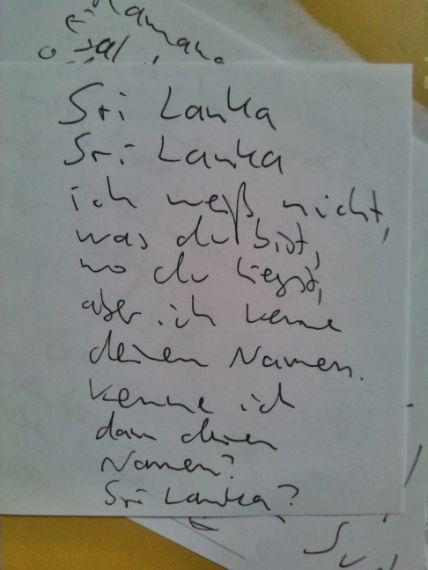 Sri Lanka
Sri Lanka
ich weiß nicht,
was du bist,
wo du liegst,
aber ich kenne
deinen Namen.
kenne ich
dann deinen
Namen?
Sri Lanka?